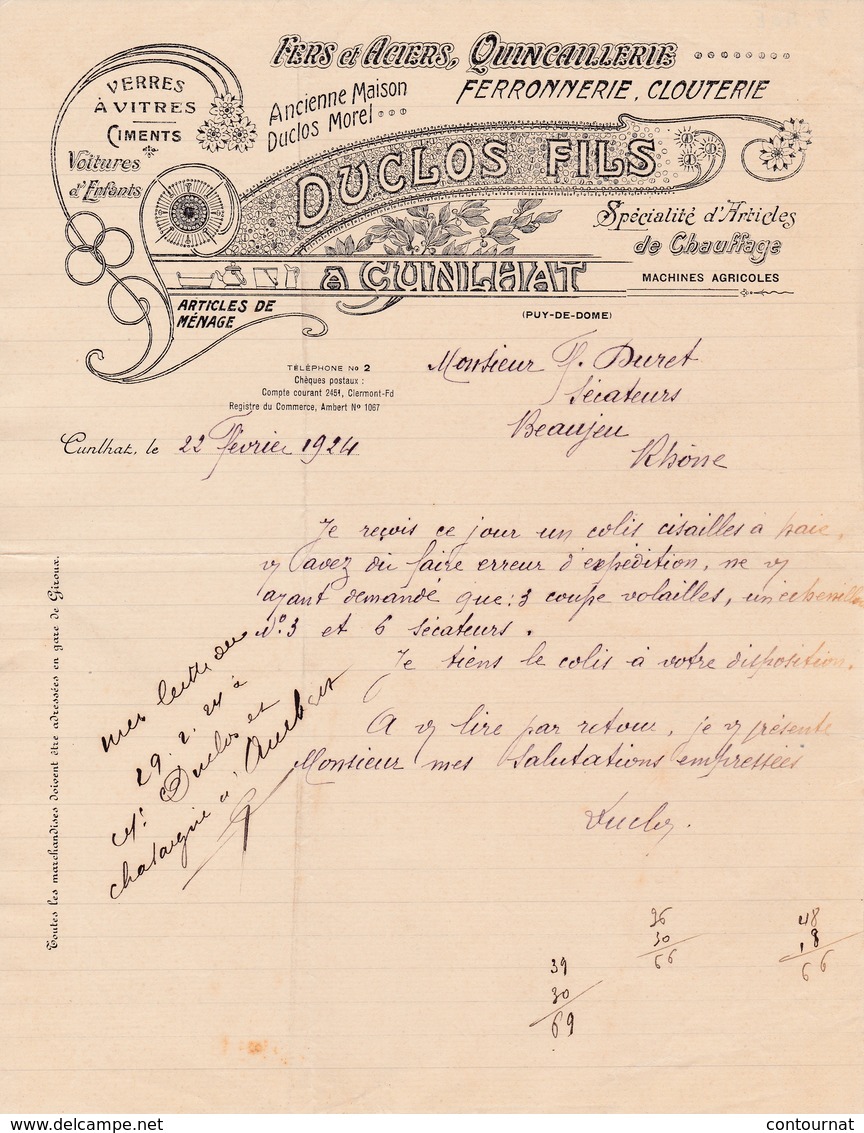 FERS et ACIERS, QUINCAILLERIE
FERRONNERIE, CLOUTERIE
Ancienne Maison
Duclos Morel
VERRES
À VITRES
CIMENTS
Voitures
d'Enfants
DUCLOS FILS
Spécialité d'Articles
de Chauffage
A CUNLHAT
MACHINES AGRICOLES
ARTICLES DE
MÉNAGE
(PUY-DE-DOME)
TÉLÉPHONE No 2
Chèques postaux :
Compte courant 2451, Clermont-Fd
Registre du Commerce, Ambert No 1067
Monsieur F. Duret
Sécateurs
Beaujeu
Rhône
Cunlhat, le 22 Février 1924
Je reçois ce jour un colis cisailles à haie,
vs avez dû faire erreur d'expédition, ne vs
ayant demandé que : 3 coupe volailles, un échenilloir
No. 3 et 6 sécateurs.
Je tiens le colis à votre disposition.
A vs lire par retour, je vs présente
Monsieur mes salutations empressées
Duclos.
Toutes les marchandises doivent être adressées en gare de Giroux.
mes lettre du
29. 2. 24 à
Mr Duclos et
chataigné à Ambert
39
30
69
36
30
66
48
18
66
www.delcampe.net
contournat